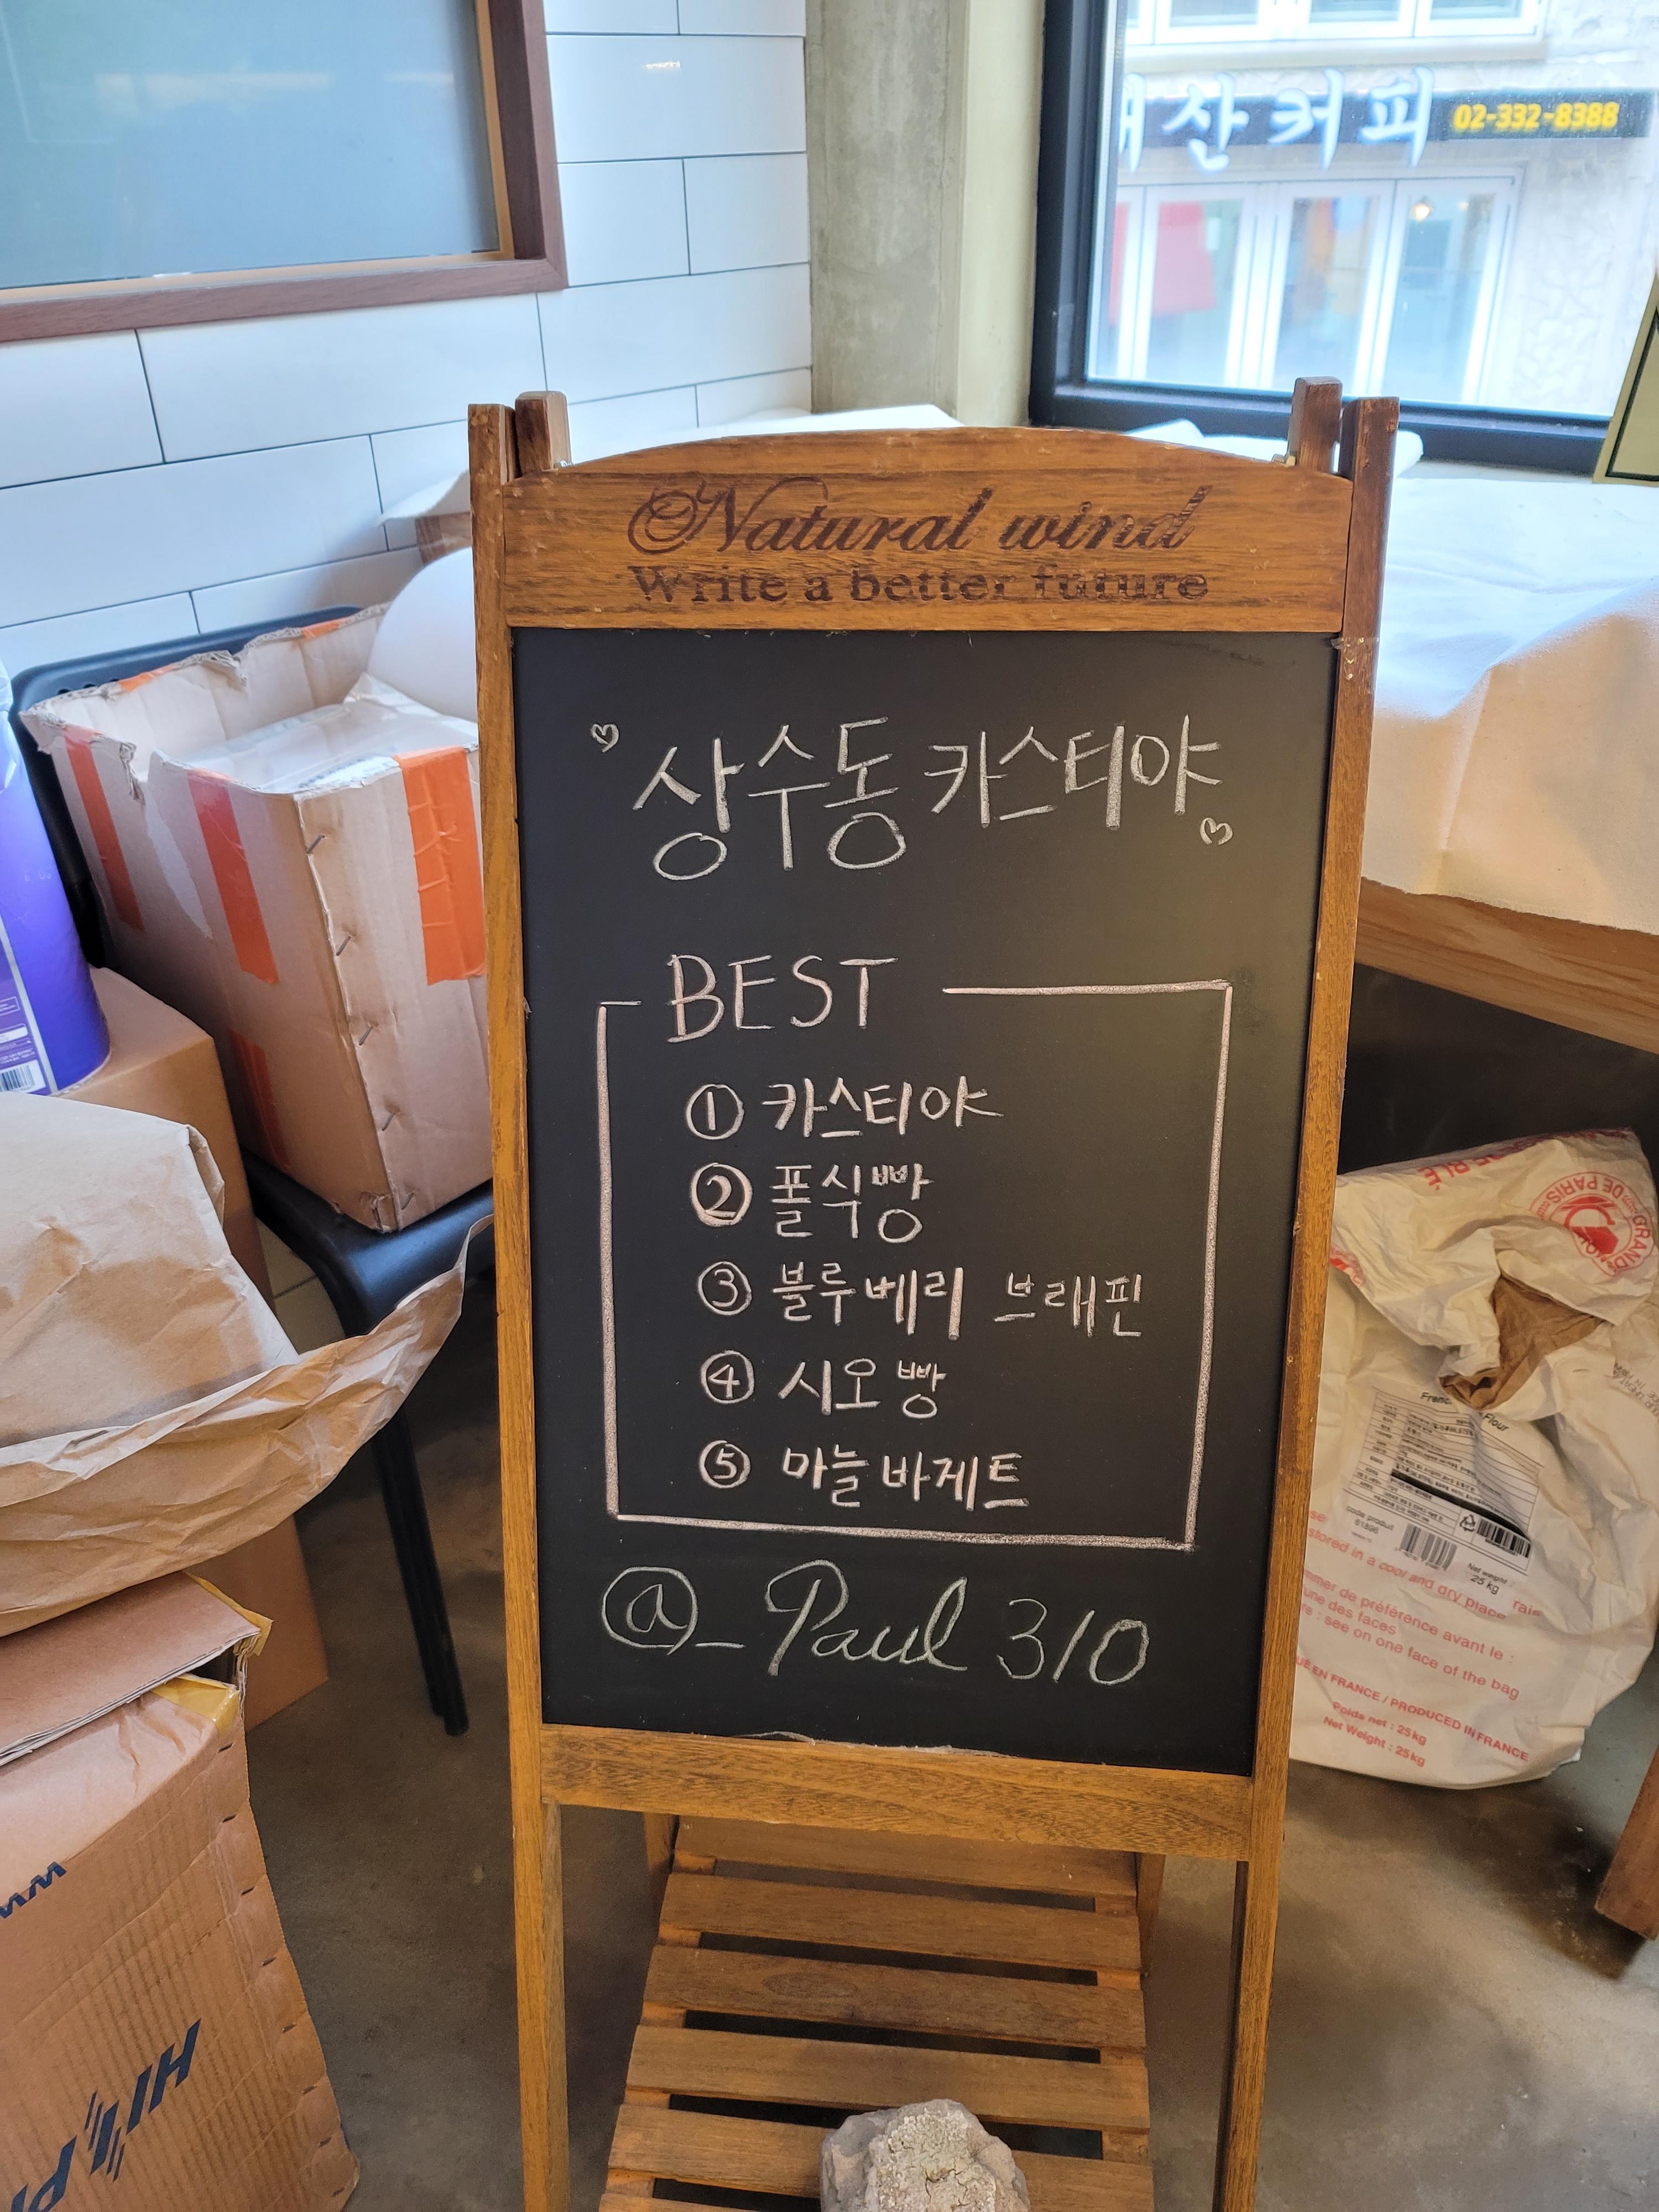 산커피 02-332-8388
Natural wind
Write a better future
상수동 카스티야
BEST
① 카스티야
② 폴식빵
③ 블루베리 브래핀
④ 시오빵
⑤ 마늘바게트
@_Paul 310
DE PARIS
GRANDS
French Flour
code product
61896
Net weight
25 kg
stored in a cool and dry place
de préférence avant le :
une des faces
: see on one face of the bag
EN FRANCE / PRODUCED IN FRANCE
Poids net : 25 kg
Net Weight : 25 kg